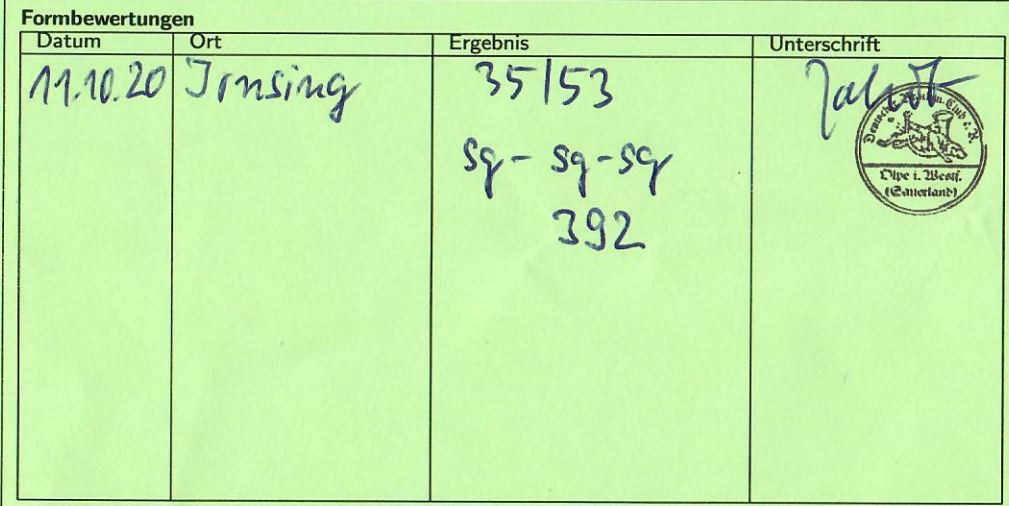 Formbewertungen
Datum Ort Ergebnis Unterschrift
11.10.20 Irnsing 35/53
sg - sg - sg
392
Deutscher Wachtel-Club e.V.
Olpe i. Westf.
(Sauerland)